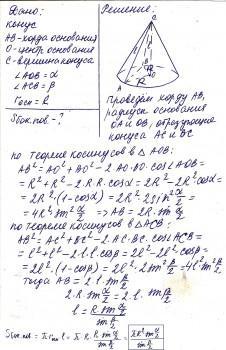 Дано:
конус
AB-хорда основания
O-центр основания
C-вершина конуса
∠AOB = α
∠ACB = β
Rосн = R
Sбок.пов - ?
Решение:
C
A
B
O
R
Проведём хорду AB,
радиусы основания
OA и OB, образующие
конуса AC и BC
по теореме косинусов в △ AOB:
AB² = AO² + BO² - 2·AO·BO·cos∠AOB =
= R² + R² - 2·R·R·cosα = 2R² - 2R²cosα =
= 2R²·(1-cosα) = 2R²·2sin²α/2 =
= 4R²sin²α/2 => AB = 2R·sinα/2
по теореме косинусов в △ACB:
AB² = AC² + BC² - 2·AC·BC·cos∠ACB =
= l² + l² - 2·l·l·cosβ = 2l² - 2l²cosβ =
= 2l²·(1-cosβ) = 2l²·2sin²β/2 = 4l²sin²β/2
тогда AB = 2l·sinβ/2
2·R·sinα/2 = 2·l·sinβ/2
l = R·sinα/2 / sinβ/2
Sбок.пов = π·R·l = π·R·R·sinα/2 / sinβ/2 = πR²·sinα/2 / sinβ/2